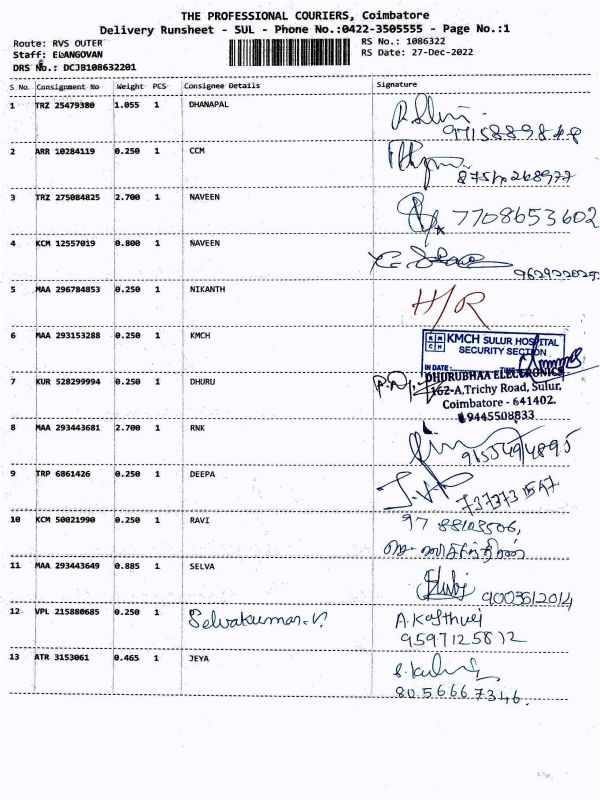 THE PROFESSIONAL COURIERS, Coimbatore
Delivery Runsheet - SUL - Phone No.:0422-3505555 - Page No.:1
Route: RVS OUTER
RS No.: 1086322
Staff: ELANGOVAN
RS Date: 27-Dec-2022
DRS No.: DCJB108632201
S No. Consignment No Weight PCS Consignee Details Signature
1 TRZ 25479380 1.055 1 DHANAPAL
2 ARR 10284119 0.250 1 CCM
3 TRZ 275084825 2.700 1 NAVEEN
7708653602
4 KCM 12557019 0.800 1 NAVEEN
5 MAA 296784853 0.250 1 NIKANTH H/R
6 MAA 293153288 0.250 1 KMCH
KMCH SULUR HOSPITAL
SECURITY SECTION
IN DATE:
7 KUR 528299994 0.250 1 DHURU
DHURUBHAA ELECTRONICS
162-A,Trichy Road, Sulur,
Coimbatore - 641402.
9445508833
8 MAA 293443681 2.700 1 RNK
9 TRP 6861426 0.250 1 DEEPA
10 KCM 50021990 0.250 1 RAVI
11 MAA 293443649 0.885 1 SELVA
12 VPL 215880685 0.250 1 Selvakumar.V. A.Kasthuri
9597125812
13 ATR 3153061 0.465 1 JEYA
8056667346.